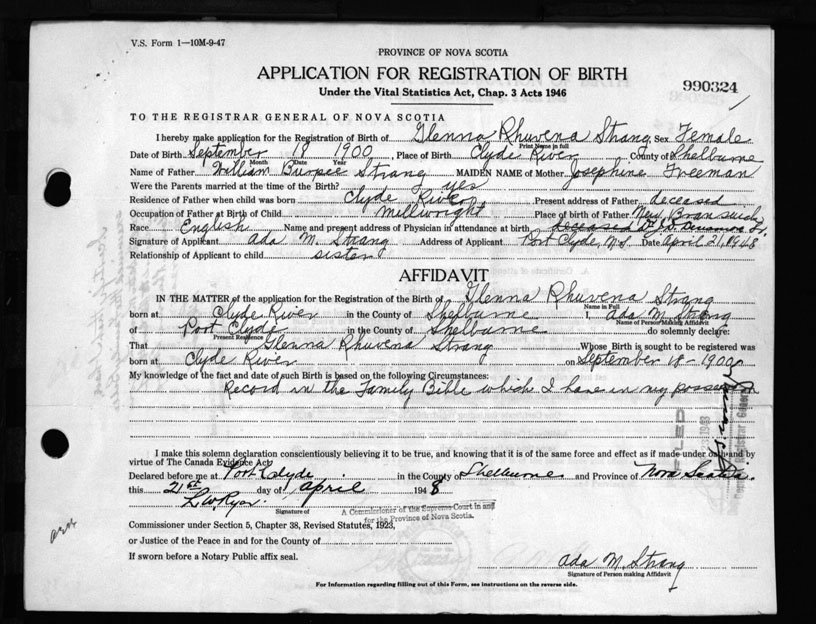 V.S. Form 1—10M-9-47
PROVINCE OF NOVA SCOTIA
APPLICATION FOR REGISTRATION OF BIRTH
990324
Under the Vital Statistics Act, Chap. 3 Acts 1946
TO THE REGISTRAR GENERAL OF NOVA SCOTIA
I hereby make application for the Registration of Birth of Glenna Rhuvena Strang Sex Female
Print Name in full
Date of Birth September 18 1900, Place of Birth Clyde River County of Shelburne
Month Date Year
Name of Father William Burpee Strang MAIDEN NAME of Mother Josephine Freeman
Were the Parents married at the time of the Birth? yes
Residence of Father when child was born Clyde River Present address of Father deceased
Occupation of Father at Birth of Child millwright Place of birth of Father New Brunswick
Race English Name and present address of Physician in attendance at birth deceased Dr.
Signature of Applicant Ada M. Strang Address of Applicant Port Clyde, N.S. Date April 21, 1948
Relationship of Applicant to child sister
AFFIDAVIT
IN THE MATTER of the application for the Registration of the Birth of Glenna Rhuvena Strang
Name in Full
born at Clyde River in the County of Shelburne I, Ada M. Strang
Name of Person Making Affidavit
of Port Clyde in the County of Shelburne do solemnly declare:
Present Residence
That Glenna Rhuvena Strang Whose Birth is sought to be registered was
born at Clyde River on September 18 - 1900
My knowledge of the fact and date of such Birth is based on the following Circumstances:
Record in the Family Bible which I have in my possession
FILED
I make this solemn declaration conscientiously believing it to be true, and knowing that it is of the same force and effect as if made under oath and by
virtue of The Canada Evidence Act.
Declared before me at Port Clyde in the County of Shelburne and Province of Nova Scotia.
this 21st day of April 1948
Signature of
A Commissioner of the Supreme Court in and
for the Province of Nova Scotia.
Commissioner under Section 5, Chapter 38, Revised Statutes, 1923,
or Justice of the Peace in and for the County of
If sworn before a Notary Public affix seal.
Ada M. Strang
Signature of Person making Affidavit
For Information regarding filling out of this Form, see instructions on the reverse side.